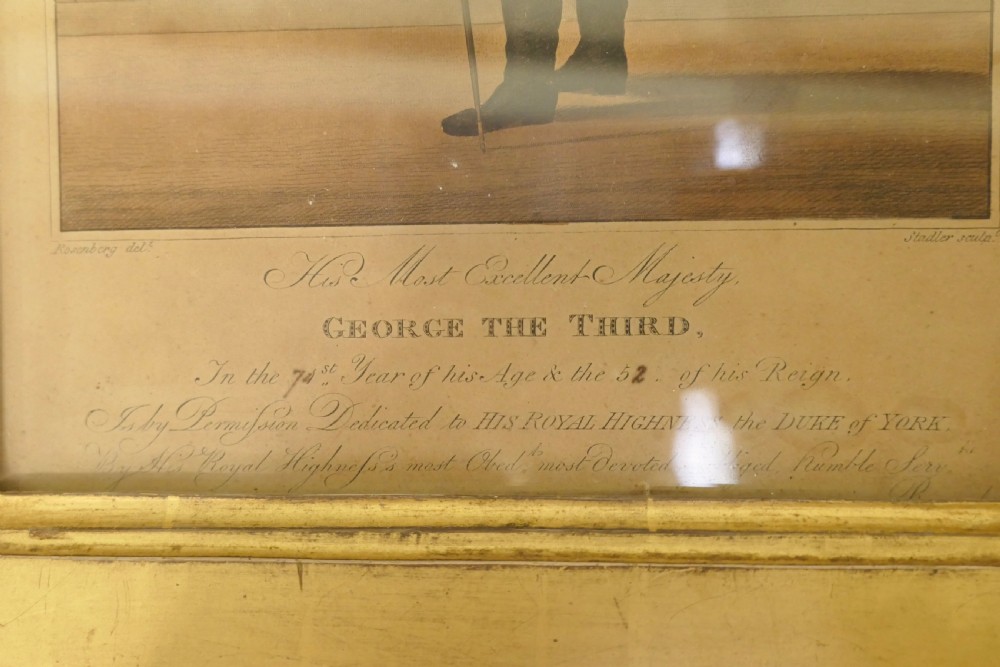 Rosenberg delt.
Stadler sculpt.
His Most Excellent Majesty,
GEORGE THE THIRD,
In the 74st. Year of his Age & the 52. of his Reign.
Is by Permiſsion Dedicated to HIS ROYAL HIGHNESS the DUKE of YORK.
By His Royal Highneſs's most Obedt. most devoted humble Servts.